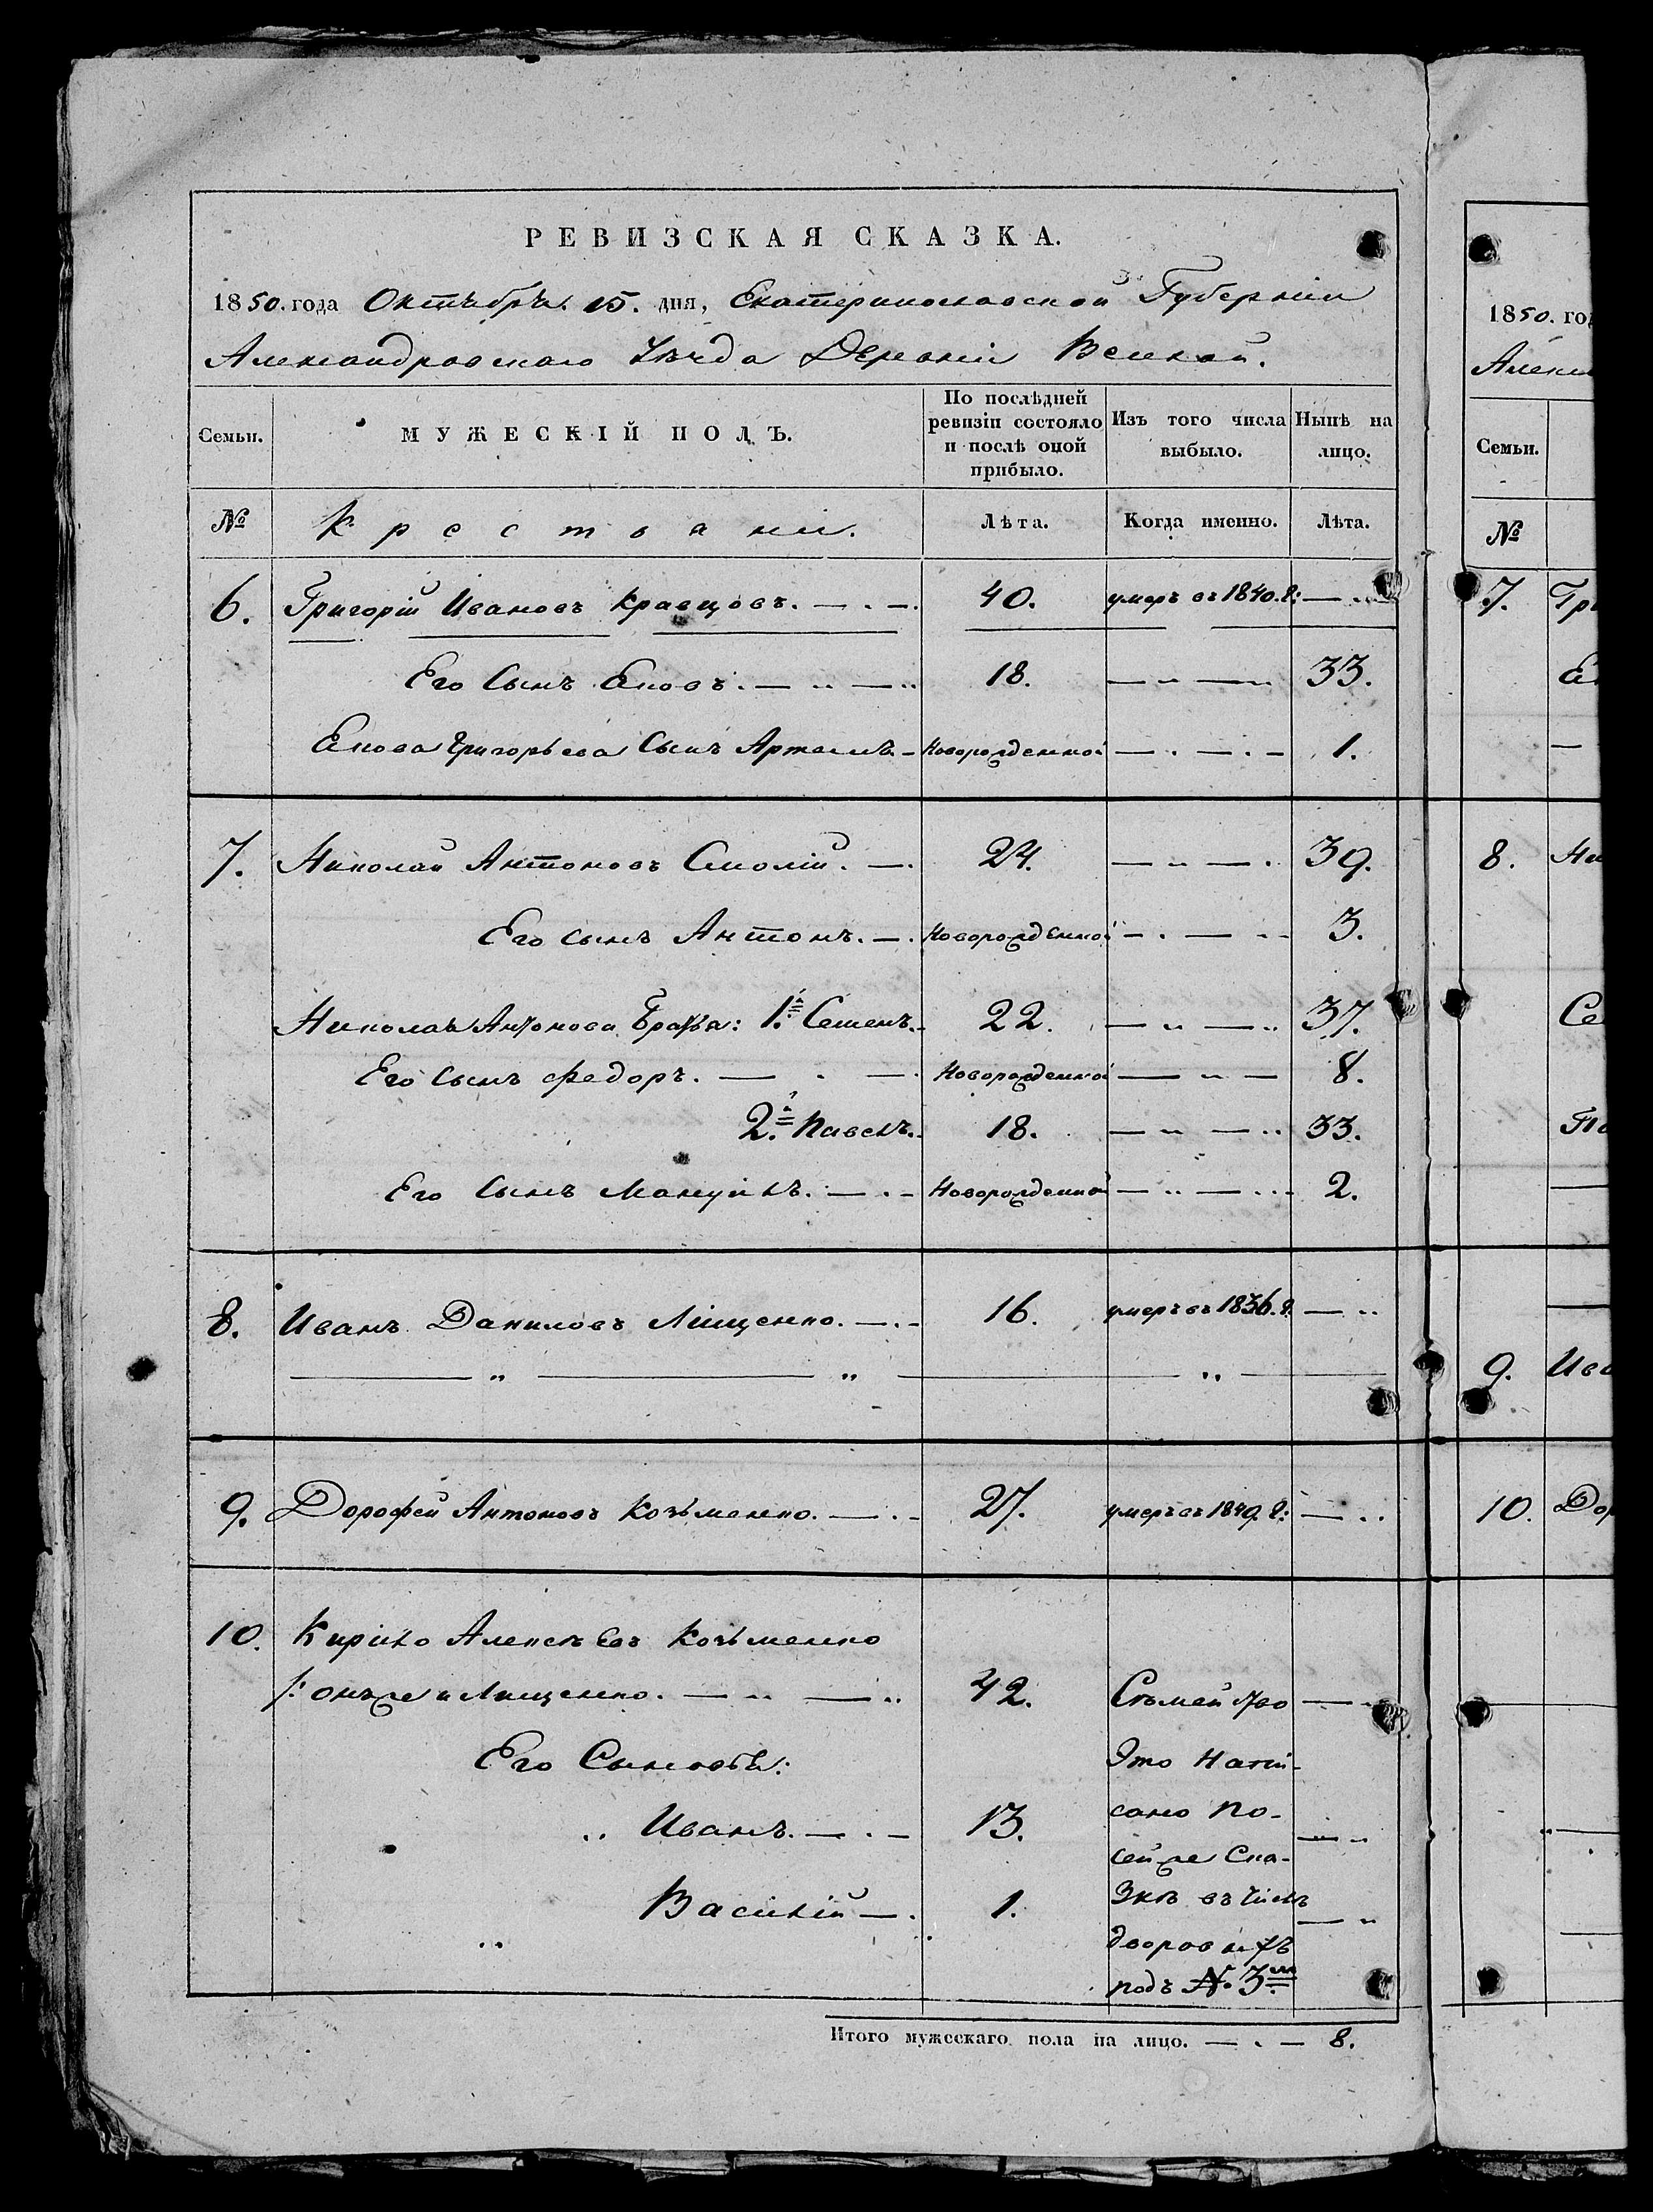 РЕВИЗСКАЯ СКАЗКА.
1850. года Октября 15. дня, Екатеринославской Губерніи
Александровскаго Уѣзда Деревни
Семьи. МУЖЕСКІЙ ПОЛЪ. По послѣдней ревизіи состояло и послѣ оной прибыло. Изъ того числа выбыло. Нынѣ на лицо.
№ Крестьяни. Лѣта. Когда именно. Лѣта.
6. Григорій Ивановъ Кравцовъ. 40. умеръ въ 1840. г:
Его Сынъ Яковъ. 18. 33.
Якова Григорьева Сынъ Артемъ Новорожденной 1.
7. Николай Антоновъ Смолій. 24. 39.
Его сынъ Антонъ. Новорожденной 3.
Николая Антонова Братья: 1.й Семенъ. 22. 37.
Его Сынъ Федоръ. Новорожденной 8.
2.й Павелъ. 18. 33.
Его Сынъ Мануилъ. Новорожденной 2.
8. Иванъ Даниловъ Лищенко. 16. умеръ въ 1836. г.
9. Дорофей Антоновъ Козьменко. 27. умеръ въ 1849. г:
10. Кирило Алексѣевъ Козьменко
/: онъ же и Лищенко. 42. Сѣмейство
Его Сыновья: Это напи-
Иванъ. 13. сано по-
сей же Ска-
Василій 1. зкѣ въ числѣ
дворовыхъ
подъ № 3м
Итого мужескаго пола на лицо. 8.
1850. го
Алекс
Семьи.
№
7. Гр
8. Ни
Се
Па
9. Ива
10. Дор